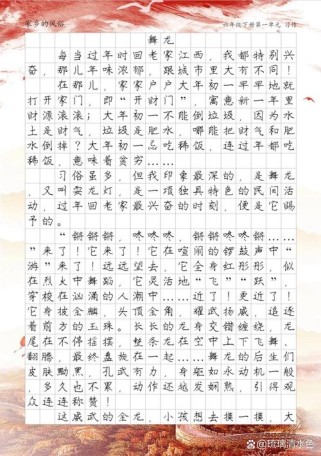 家乡的风俗 六年级下册第一单元 习作
舞龙
每当过年时回老家江西，我都特别兴
奋，在那儿年味浓郁，跟城市里大有不同！
在那儿，家家户户大年初一早早地就
打开家门，即“开财门”，寓意新一年里
财源滚滚；大年初一不能倒垃圾，因为水
土是财气，垃圾是肥水，哪能把财气和肥
水倒掉？大年初一忌吃稀饭，连过年都吃
稀饭，意味着贫穷……
习俗虽多，但我印象最深的，是舞龙，
又叫耍龙灯，是一项独具特色的民间活
动，过年回老家最兴奋的时刻，便是它赐
予的。
“锵锵锵，咚咚咚，锵锵锵咚咚……
”来了！它来了！它在喧闹的锣鼓声中“
游”来了！远远望去，它全身红彤彤，似
在烈火中舞蹈，它灵活地“飞”“跃”，
穿梭在汹涌的人潮中……近了！更近了！
它身披金鳞，头顶金角，耀武扬威，追逐
着前方的玉珠。长长的龙身交错缠绕，龙
尾在不停摇摆，整条龙在空中上下飞舞、
翻腾，最终盘旋在一起……舞龙的后生们
皮肤黝黑，孔武有力，身躯如永动机一般
，多久也不累，动作还越发娴熟，引得观
众连连称赞！
这威武的金龙，小孩想去摸一摸，大
琉璃清水色